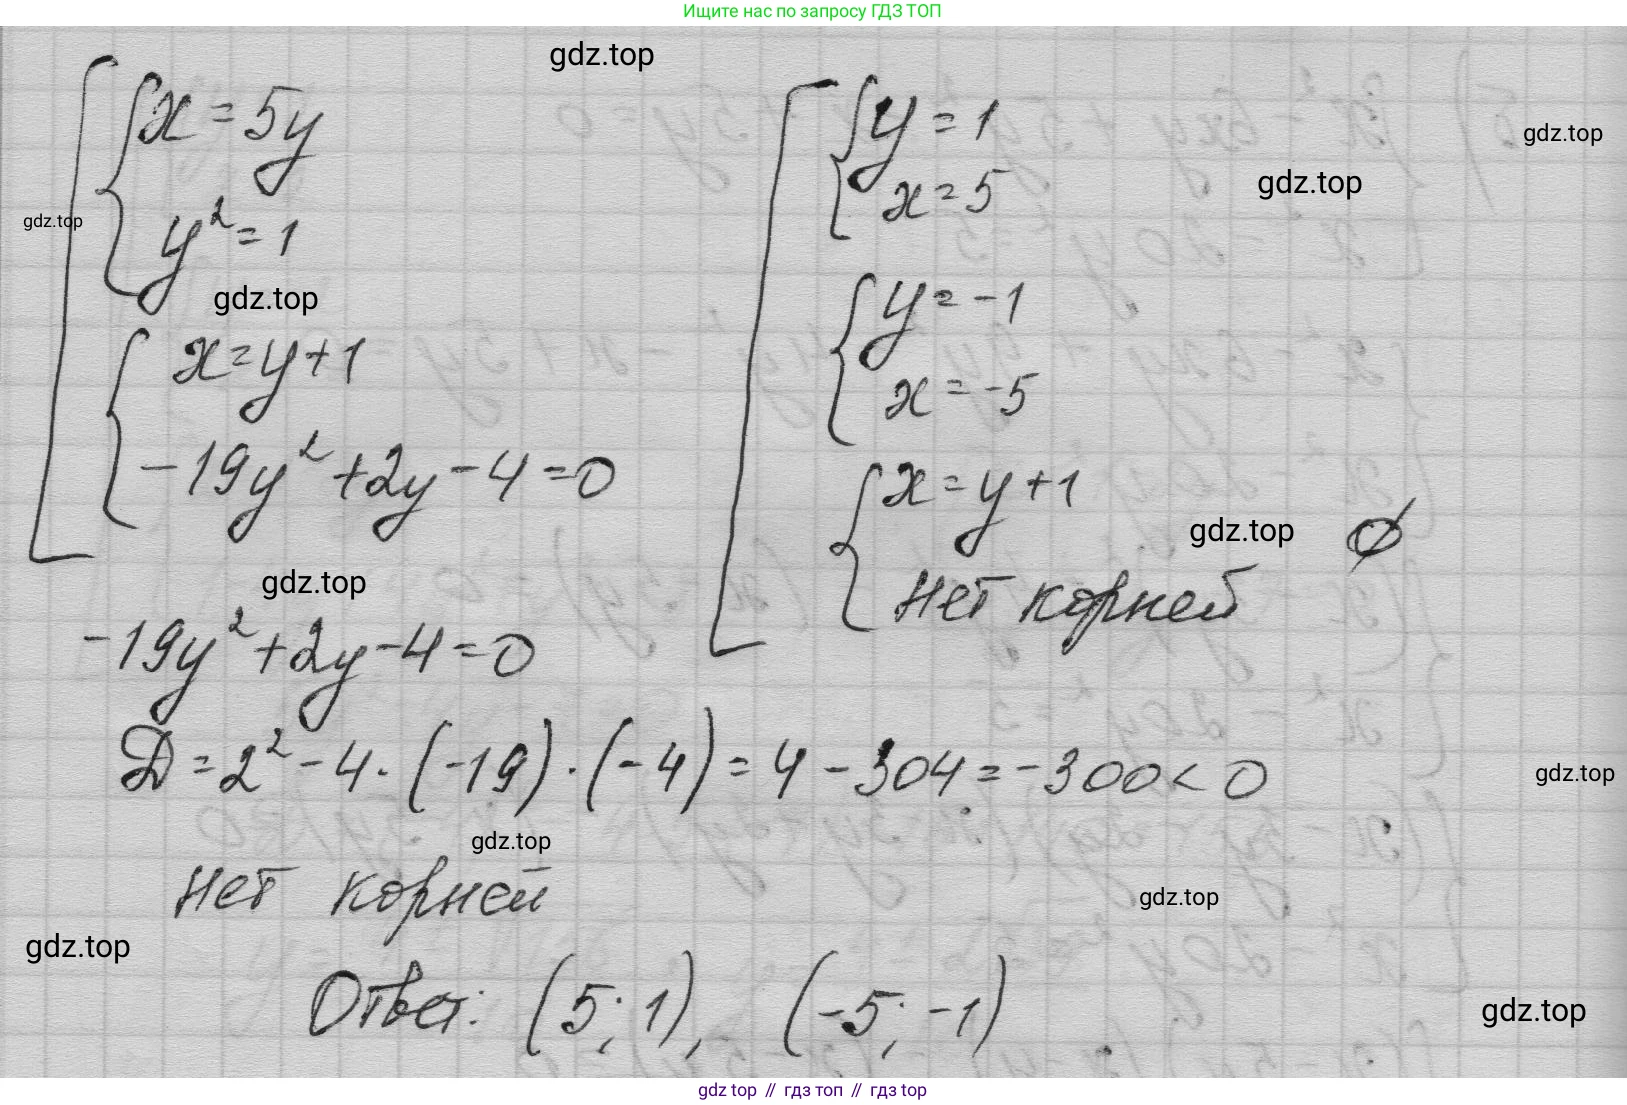 Ищите нас по запросу ГДЗ ТОП
gdz.top
x = 5y
y² = 1
x = y + 1
-19y² + 2y - 4 = 0
y = 1
x = 5
y = -1
x = -5
x = y + 1
Нет корней
∅
gdz.top
gdz.top
gdz.top
gdz.top
gdz.top
gdz.top
-19y² + 2y - 4 = 0
D = 2² - 4 · (-19) · (-4) = 4 - 304 = -300 < 0
gdz.top
gdz.top
Нет корней
gdz.top
gdz.top
Ответ: (5; 1), (-5; -1)
gdz.top
gdz top // гдз топ // гдз top